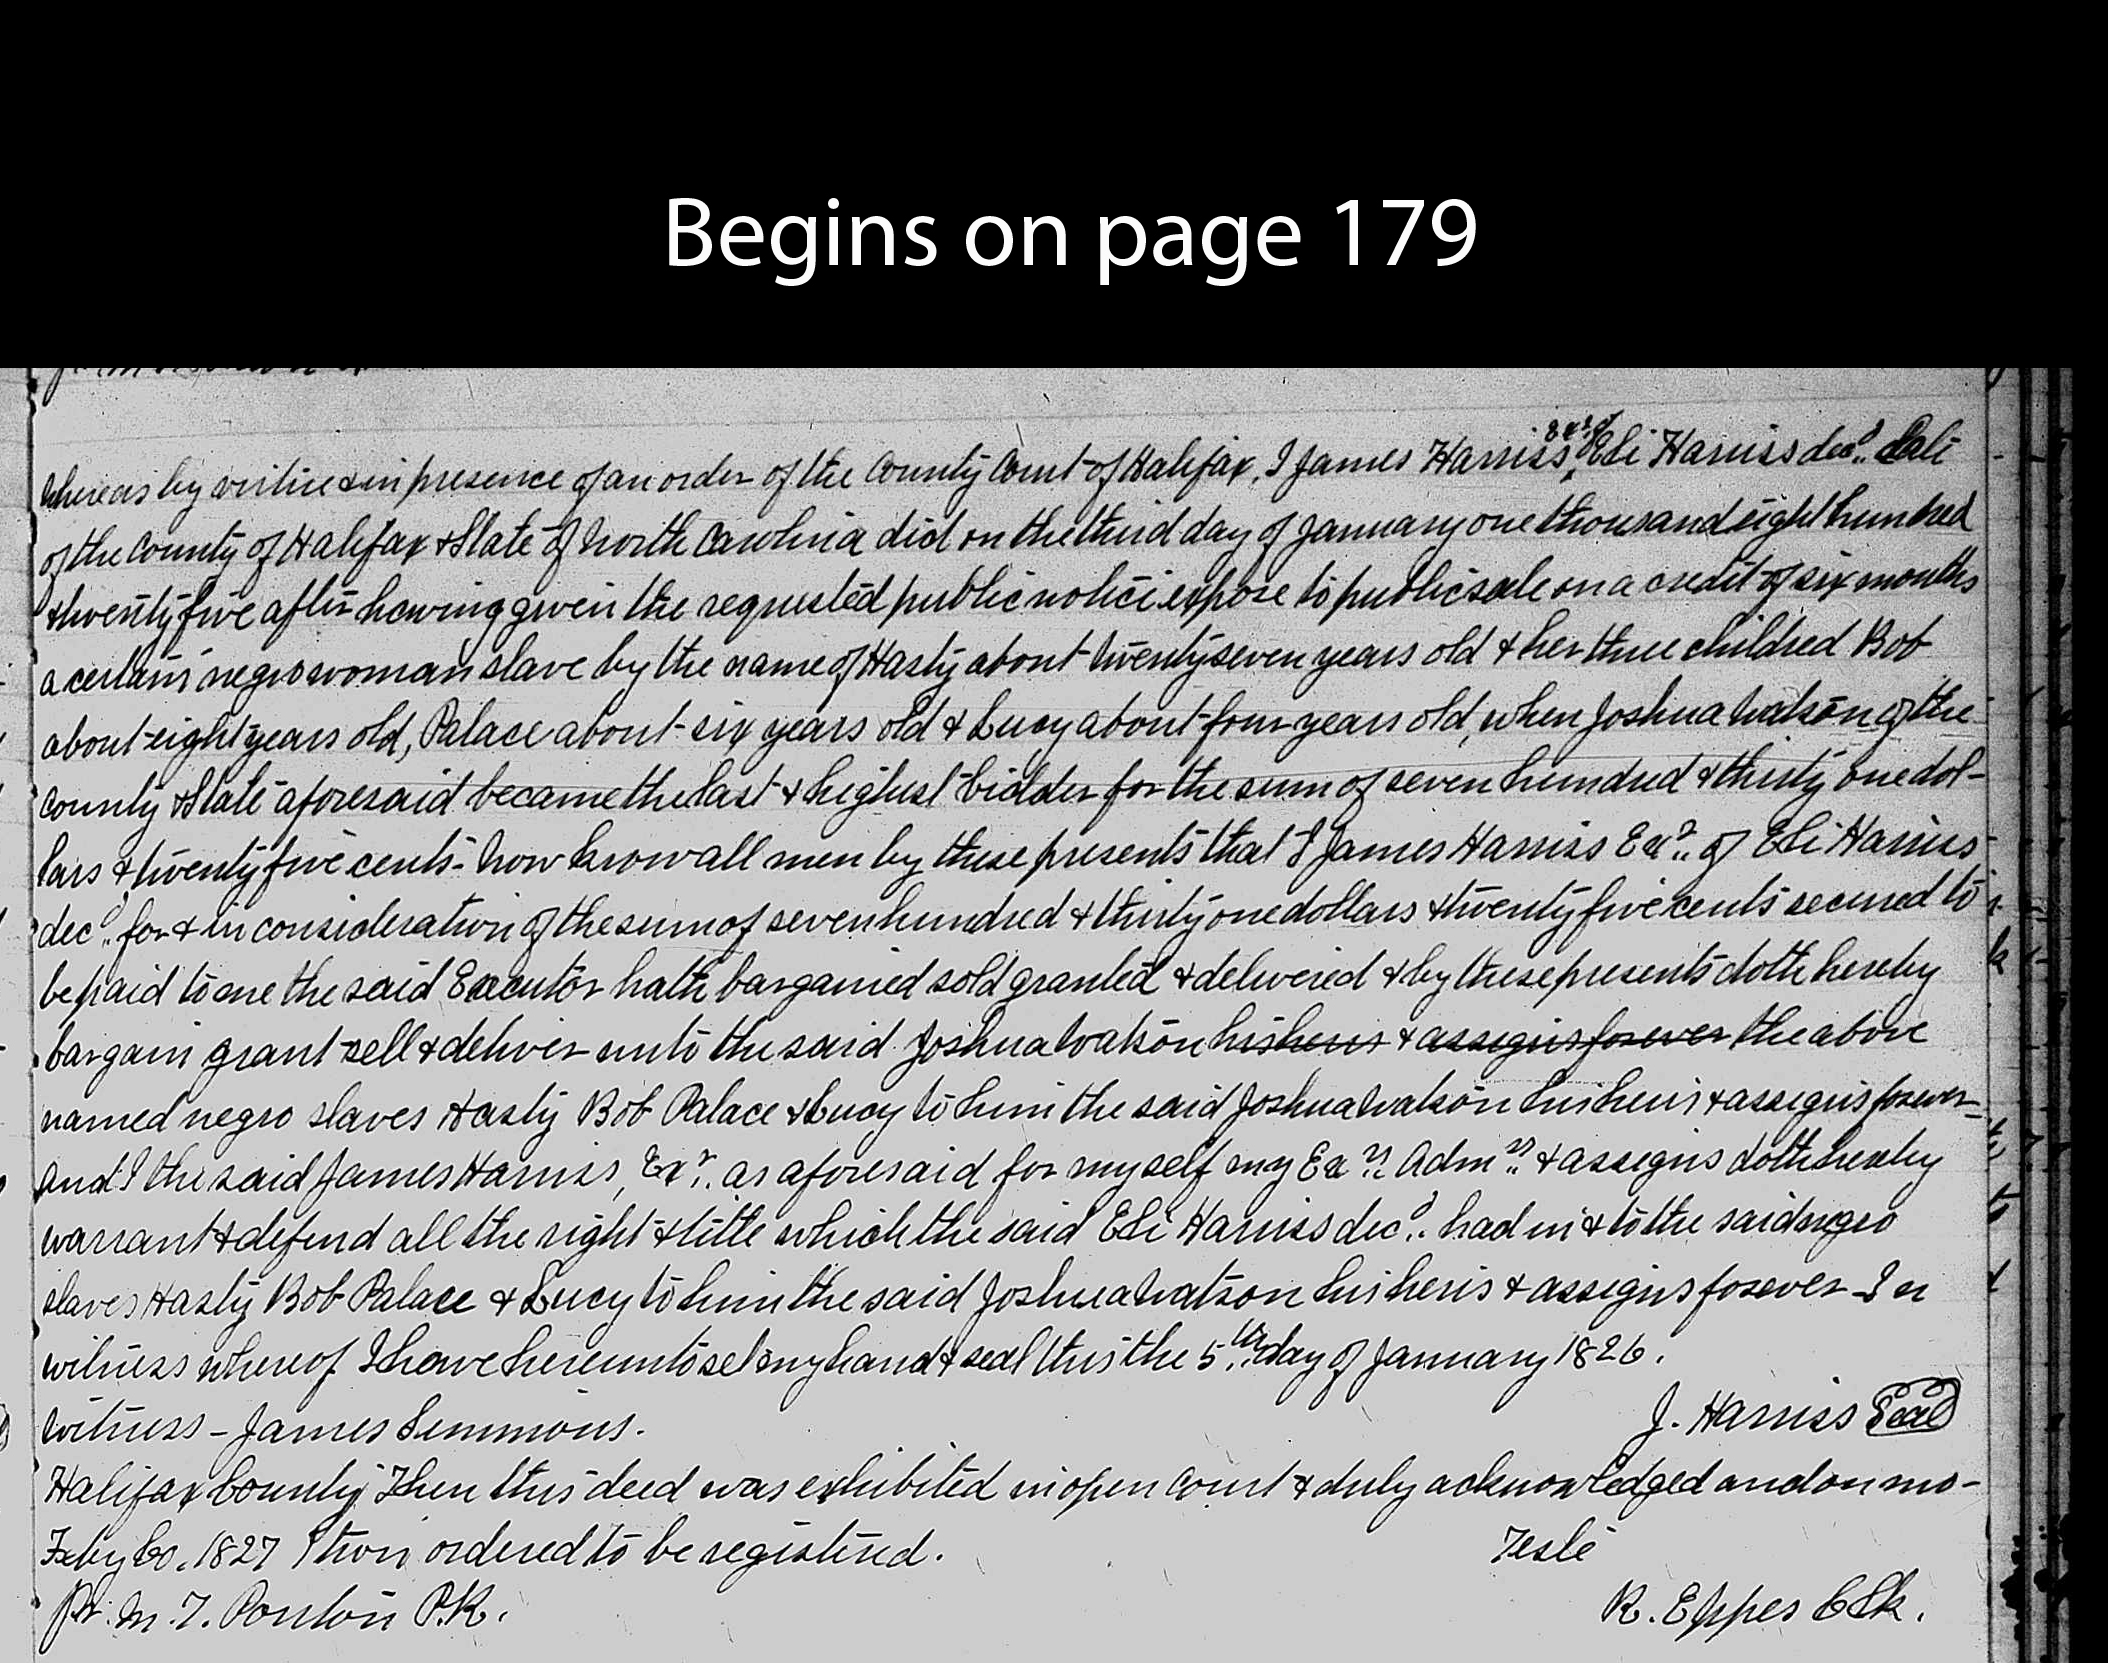 Begins on page 179
Whereas by virtue & in presence of an order of the County Court of Halifax, I James Harriss, Exr. of Eli Harriss decd. late
of the County of Halifax & State of North Carolina did on the third day of January one thousand eight hundred
& twenty five after having given the requested public notice expose to public sale on a credit of six months
a certain negro woman slave by the name of Hasty about twenty seven years old & her three childred Bob
about eight years old, Palace about six years old & Lucy about four years old, when Joshua Watson of the
County & State aforesaid became the last & highest bidder for the sum of seven hundred & thirty one dol-
lars & twenty five cents - Now know all men by these presents that I James Harriss Exr. of Eli Harriss
decd. for & in consideration of the sum of seven hundred & thirty one dollars & twenty five cents secured to
be paid to me the said Executor hath bargained sold granted & delivered & by these presents doth hereby
bargain grant sell & deliver unto the said Joshua Watson his heirs & assigns forever the above
named negro slaves Hasty Bob Palace & Lucy to him the said Joshua Watson his heirs & assigns forever -
And I the said James Harriss, Exr. as aforesaid for myself my Exrs. Admrs. & assigns doth hereby
warrant & defend all the right & title which the said Eli Harriss decd. had in & to the said negro
slaves Hasty Bob Palace & Lucy to him the said Joshua Watson his heris & assigns forever - In
witness whereof I have hereunto set my hand & seal this the 5th. day of January 1826.
Witness - James Simmons. J. Harriss Seal
Halifax County Then this deed was exhibited in open Court & duly acknowledged and on mo-
Feby Co. 1827 } tion ordered to be registered. Teste
Pr. M. T. Ponton P.R. R. Eppes Clk.